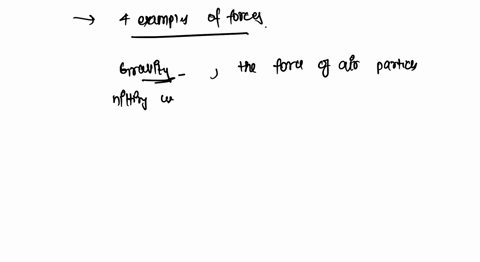 → 4 examples of forces.
Gravity - , the force of air partices